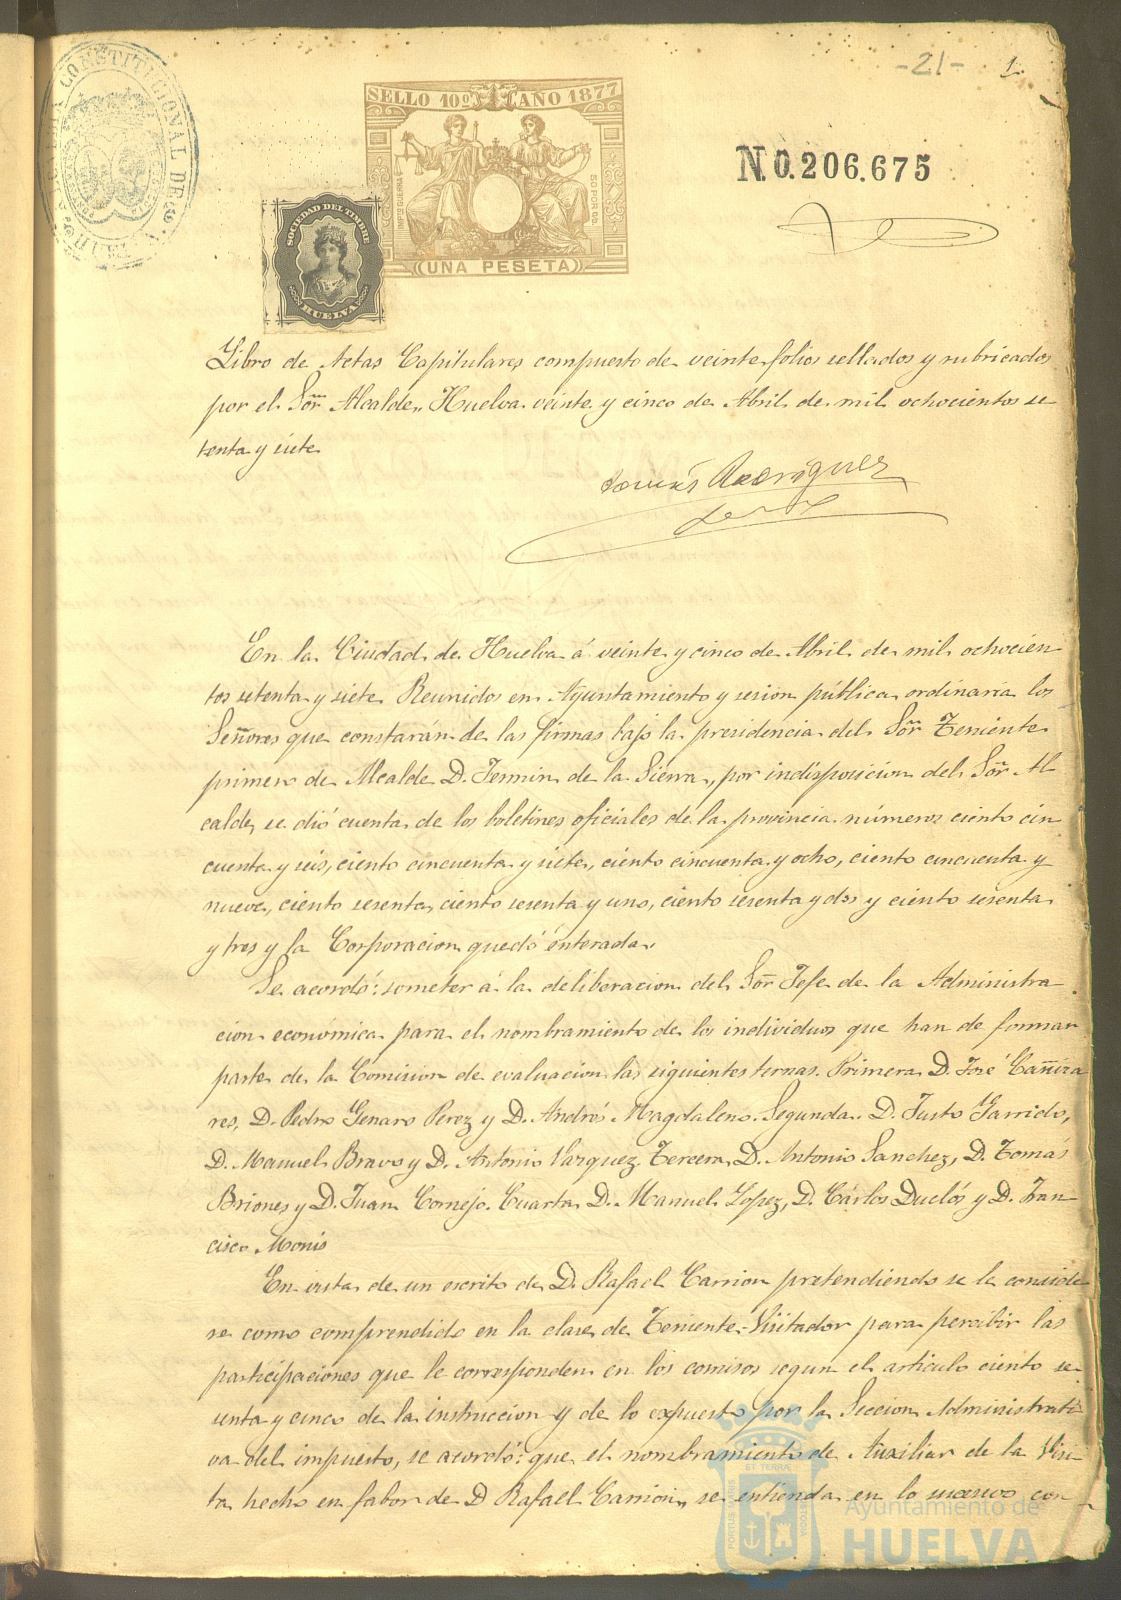 -21- 1.
ALCALDIA CONSTITUCIONAL DE HUELVA
SELLO 10º AÑO 1877
IMPTO GUERRA
50 POR 00.
UNA PESETA
N.0.206.675
SOCIEDAD DEL TIMBRE
HUELVA
Libro de Actas Capitulares compuesto de veinte folios sellados y rubricados
por el Sor. Alcalde, Huelva veinte y cinco de Abril de mil ochocientos se
tenta y siete
Tomás Rodriguez
En la Ciudad de Huelva á veinte y cinco de Abril de mil ochocien-
tos setenta y siete Reunidos en Ayuntamiento y sesión pública ordinaria los
Señores que constarán de las firmas bajo la presidencia del Sor. Teniente
primero de Alcalde D. Fermin de la Sierra, por indisposicion del Sor. Al-
calde, se dió cuenta de los boletines oficiales de la provincia números ciento cin
cuenta y seis, ciento cincuenta y siete, ciento cincuenta y ocho, ciento cincuenta y
nueve, ciento sesenta, ciento sesenta y uno, ciento sesenta y dos y ciento sesenta
y tres y la Corporacion quedó enterada.
Se acordó: someter á la deliberacion del Sor. Jefe de la Administra-
cion económica para el nombramiento de los individuos que han de formar
parte de la Comision de evaluacion las siguientes ternas. Primera D. José Cañiza
res, D. Pedro Genaro Perez y D. Andrés Magdaleno. Segunda. D. Justo Garrido,
D. Manuel Bravo y D. Antonio Vazquez. Tercera, D. Antonio Sanchez, D. Tomás
Briones y D. Juan Cornejo. Cuarta D. Manuel López, D. Cárlos Duclós y D. Fran-
cisco Monis
En vista de un escrito de D. Rafael Carrion pretendiendo se le conside
re como comprendido en la clase de Teniente-Visitador para percibir las
participaciones que le corresponden en los comisos segun el articulo ciento se-
senta y cinco de la instruccion y de lo expuesto por la Seccion Administrati
va del impuesto, se acordó: que el nombramiento de Auxiliar de la Visi-
ta hecho en fabor de D Rafael Carrion, se entienda en lo sucesivo con-
Ayuntamiento de
HUELVA